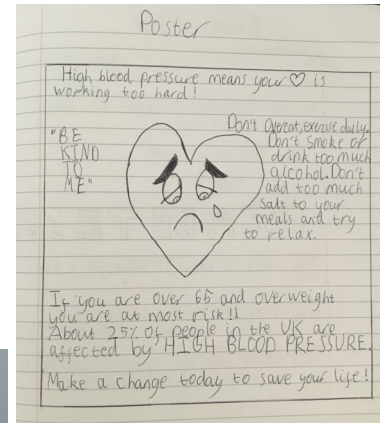 Poster
High blood pressure means your ♡ is
working too hard!
"BE
KIND
TO
ME"
Don't Overeat, exercise daily.
Don't smoke or
drink too much
alcohol. Don't
add too much
salt to your
meals and try
to relax.
If you are over 65 and overweight
you are at most risk!!
About 25% of people in the UK are
affected by HIGH BLOOD PRESSURE.
Make a change today to save your life!